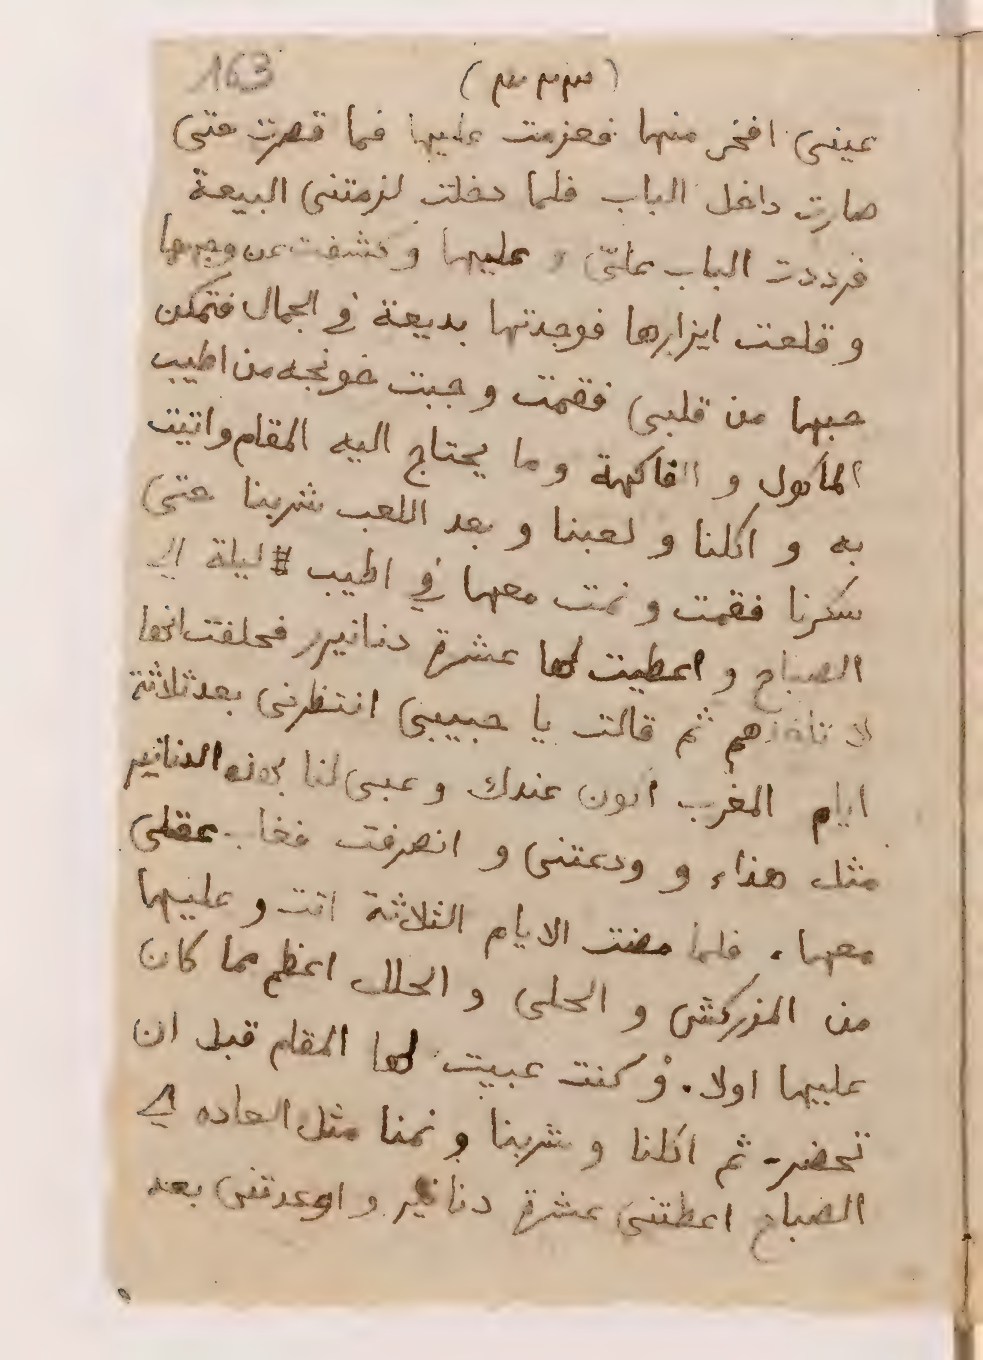 163
(٣٣٣)
عينى افخر منها فعزمت عليها فما قصرت حتى
صارت داخل الباب فلما دخلت لزمتنى البيعة
فرددت الباب علىّ و عليها و كشفت عن وجهها
و قلعت ايزارها فوجدتها بديعة فى الجمال فتمكن
حبها من قلبى فقمت و جبت خونجه من اطيب
المأكول و الفاكهة و ما يحتاج اليه المقام واتيت
به و اكلنا و لعبنا و بعد اللعب شربنا حتى
سكرنا فقمت و نمت معها في اطيب # ليلة الى
الصباح و اعطيت لها عشرة دنانير فحلفت انها
لا تاخذهم ثم قالت يا حبيبى انتظرنى بعد ثلاثة
ايام المغرب اكون عندك و عبى لنا بهذه الدنانير
مثل هذاء و ودعتنى و انصرفت فغاب عقلى
معها . فلما مضت الايام الثلاثة اتت و عليها
من المزركش و الحلى و الحلل اعظم مما كان
عليها اولا . و كنت عبيت لها المقام قبل ان
تحضر - ثم اكلنا و شربنا و نمنا مثل العاده الى
الصباح اعطتنى عشرة دنانير و اوعدتنى بعد